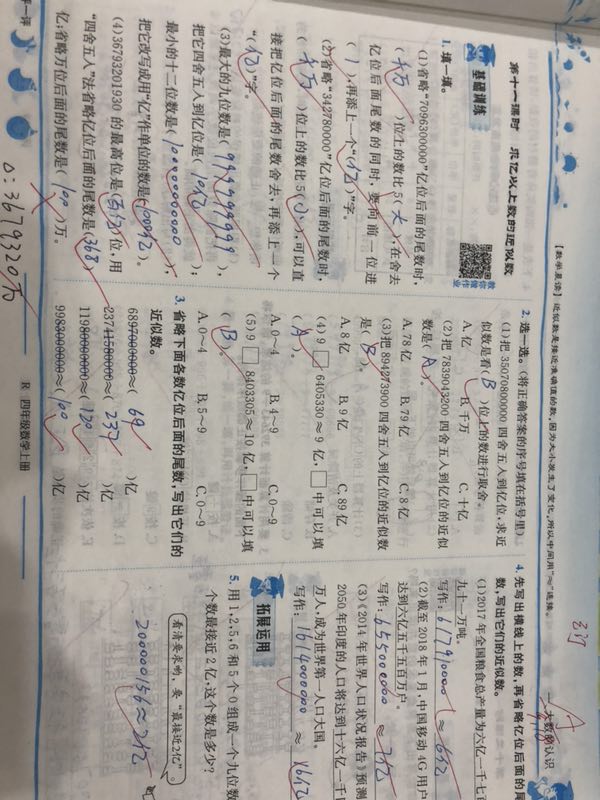 第十一课时 求亿以上数的近似数
【数学晨读】近似数是接近准确值的数,因为大小发生了变化,所以中间用“≈”连接。
一 大数的认识
基础训练
1. 填一填。
(1)省略“7096300000”亿位后面的尾数时,
(千万)位上的数比5(大),在舍去
亿位后面尾数的同时,要向前一位进
(1),再添上一个“(亿)”字。
(2)省略“943780000”亿位后面的尾数时,
(千万)位上的数比5(小),可以直
接把亿位后面的尾数舍去,再添上一个
“(亿)”字。
(3)最大的九位数是(999999999),
把它四舍五入到亿位是(10亿);
最小的十二位数是(100000000000),
把它改写成用“亿”作单位的数是(1000亿)。
(4)36793201930的最高位是(百亿)位,用
“四舍五入”法省略亿位后面的尾数是(368)
亿;省略万位后面的尾数是(100)万。
△:3679320万
2. 选一选。(将正确答案的序号填在括号里)
(1)把35070800000四舍五入到亿位,求近
似数是看(B)位上的数进行取舍。
A. 亿 B. 千万 C. 十亿
(2)把7839043200四舍五入到亿位的近似
数是(A)。
A. 78亿 B. 79亿 C. 8亿
(3)把894273900四舍五入到亿位的近似数
是(B)。
A. 8亿 B. 9亿 C. 89亿
(4)9□6405330≈9亿,□中可以填
(A)。
A. 0~4 B. 4~9 C. 0~9
(5)9□8403305≈10亿,□中可以填
(B)。
A. 0~4 B. 5~9 C. 0~9
3. 省略下面各数亿位后面的尾数,写出它们的
近似数。
6897000000≈(69)亿
23741580000≈(237)亿
11980000000≈(120)亿
9983000000≈(100)亿
4. 先写出横线上的数,再省略亿位后面的尾
数,写出它们的近似数。
(1)2017年全国粮食总产量为六亿一千七
九十一万吨。
写作:617910000≈6亿
(2)截至2018年1月,中国移动4G用户
达到六亿五千五百万户。
写作:655000000≈7亿
(3)《2014年世界人口状况报告》预测
2050年印度的人口将达到十六亿一千
万人,成为世界第一人口大国。
写作:1614000000≈16亿
拓展运用
5. 用1,2,5,6和5个0组成一个九位数
个数最接近2亿,这个数是多少?
看清要求哟,要“最接近2亿”。
200000156≈2亿
R 四年级数学上册